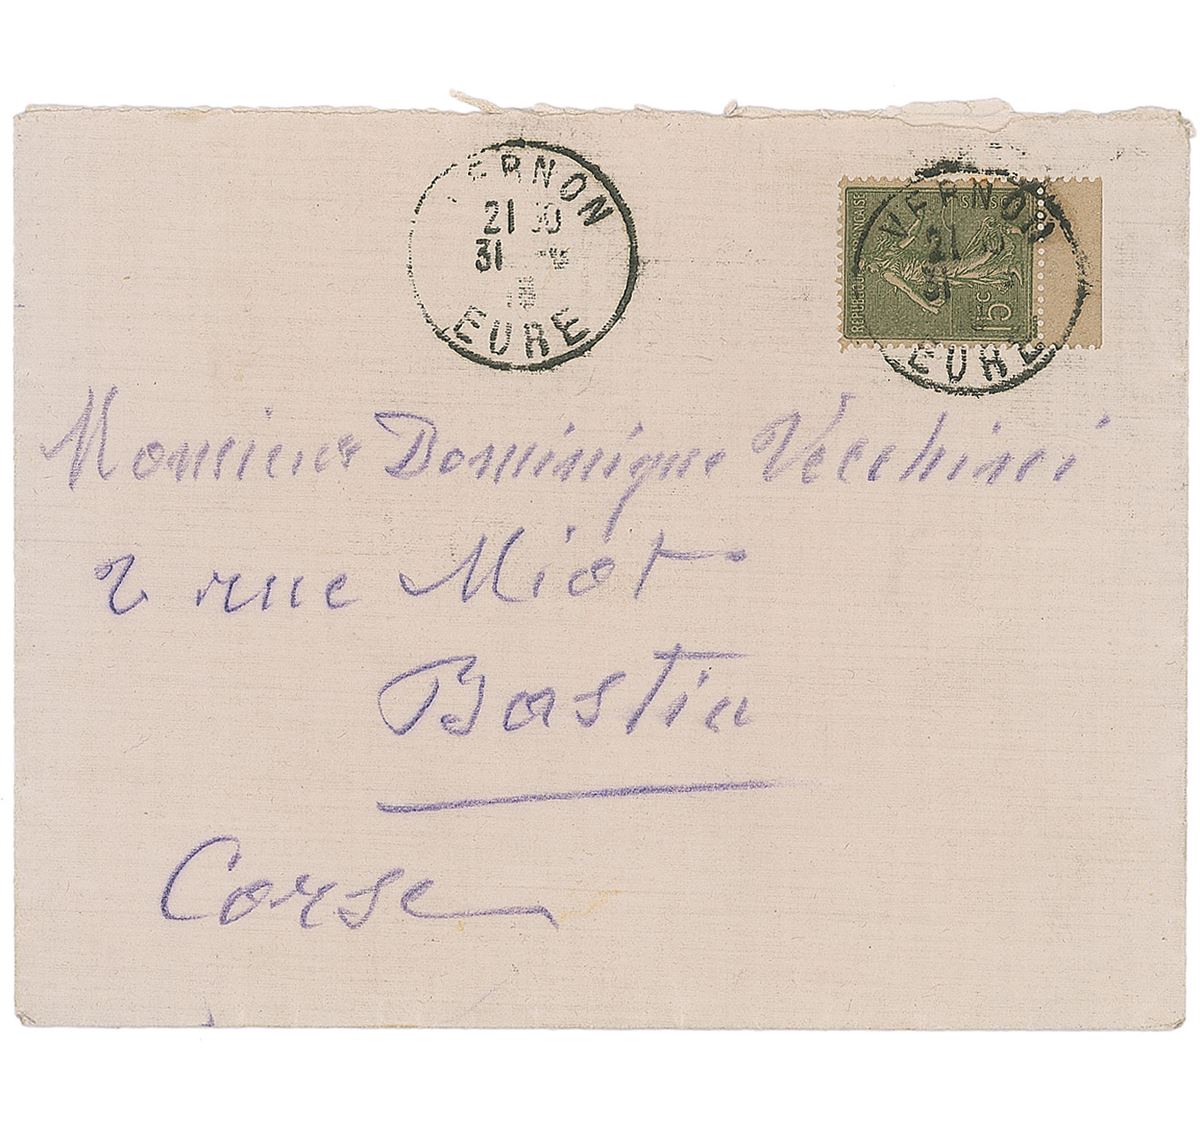 VERNON
21 30
31
EURE
VERNON
21
31
EURE
REPUBLIQUE FRANCAISE
15c
Monsieur Dominique Vecchini
2 rue Miot
Bastia
Corse